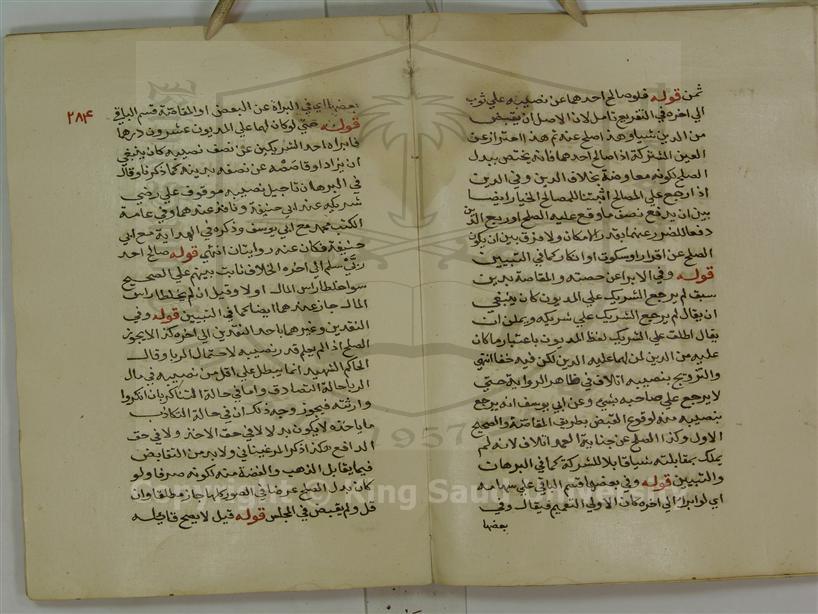 ثمن قوله فلو صالح احدهما عن نصيبه علي ثوب
الي اخره في التفريع تامل لان الاصل ان يقبض
من الدين شيا وهذا صلح عنه ثم هذا احتراز عن
العين المشتركة اذا صالح احدهما فانه يختص ببدل
الصلح لكونه معاوضة بخلاف الدين وفي الدين
اذا رجع علي المصالح اثبتنا للمصالح الخيار ايضا
بين ان يدفع نصف ما وقع عليه الصلح او ربع الدين
دفعا للضرر عنهما بقدر الامكان ولا فرق بين ان يكون
الصلح عن اقرار او سكوت او انكار كما في التبيين
قوله وفي الابراء عن حصته والمقاصة بدين
سبق لم يرجع الشريك علي المديون كان ينبغي
ان يقال لم يرجع الشريك علي شريكه ويمكن ان
يقال اطلق علي الشريك لفظ المديون باعتبار ما كان
عليه من الدين لمن لهما عليه الدين لكن فيه خفا انتهي
والتزويج بنصيبه اتلاف في ظاهر الرواية حتي
لا يرجع علي صاحبه بشي وعن ابي يوسف انه يرجع
بنصيبه منه لوقوع القبض بطريق المقاصة والصحيح
الاول وكذا الصلح عن جناية العمد اتلاف لانه لم
يملك بمقابلته شيا قابلا للشركة كما في البرهان
والتبيين قوله وفي بعضها قسم الباقي علي سهامه
اي لو ابرا الي اخره كان الاولي التعميم فيقال وفي
بعضها
٢٨٤
بعضها اي في البراة عن البعض او المقاصة قسم الباقي
قوله حتي لو كان لهما علي المديون عشرون درهما
فابراه احد الشريكين عن نصف نصيبه كان ينبغي
ان يزاد او قاصصه عن نصفه بدينه كما ذكرنا وقال
في البرهان تاجيل نصيبه موقوف علي رضي
شريكه عند ابي حنيفة ونافذ عندهما وفي عامة
الكتب محمد مع ابي يوسف وذكره في الهداية مع ابي
حنيفة فكان عنه روايتان انتهي قوله صالح احد
ربي سلم الي اخره الخلاف ثابت بينهم علي الصحيح
سوا خلطا راس المال اولا وقيل ان لم يخلطا راس
المال جاز عندهما ايضا كما في التبيين قوله وفي
النقدين وغيرها باحد النقدين الي اخره كذا لا يجوز
الصلح اذا لم يعلم قدر نصيبه لاحتمال الربا وقال
الحاكم الشهيد انما يبطل علي اقل من نصيبه في مال
الربا حالة التصادق واما في حالة التناكر بان انكروا
وارثته فيجوز وجه ذلك ان في حالة التكاذب
ما ياخذه لا يكون بدلا لا في حق الاخذ ولا في حق
الدافع هكذا ذكر المرغيناني ولا بد من التقابض
فيما يقابل الذهب والفضة منه لكونه صرفا ولو
كان بدل الصلح عرضا في الصور كلها جاز مطلقا وان
قل ولم يقبض في المجلس قوله قيل لا يصح قايله
Copyright © King Saud University
1957